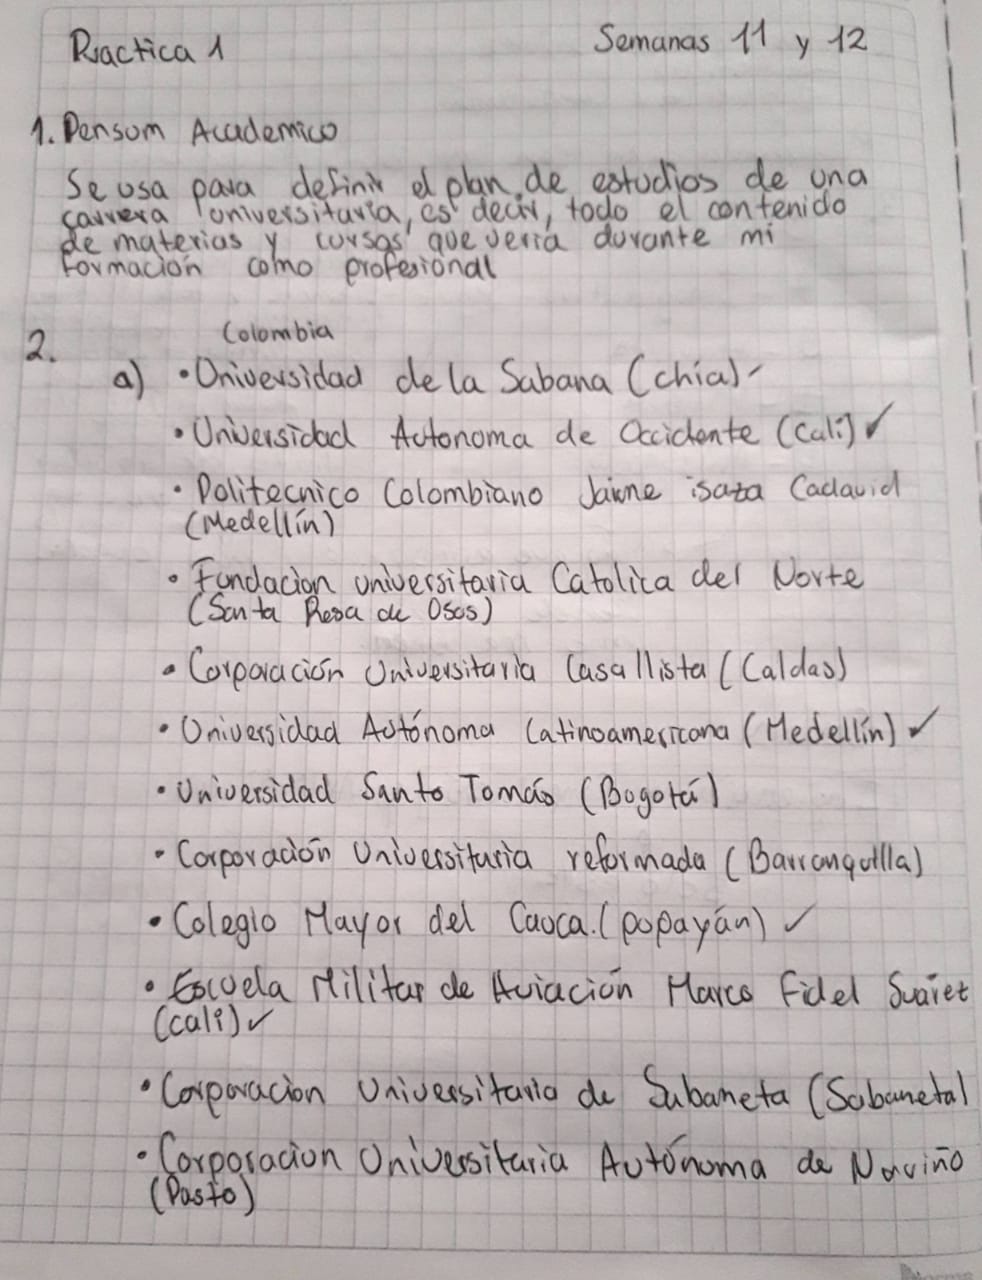 Practica 1 Semanas 11 y 12
1. Pensum Academico
Se usa para definir el plan de estudios de una
carrera universitaria, es decir, todo el contenido
de materias y cursos que vería durante mi
formacion como profesional
Colombia
2.
a) • Universidad de la Sabana (chía)
• Universidad Autonoma de Occidente (Cali) ✓
• Politecnico Colombiano Jaime isaza Cadavid
(Medellín)
• Fundacion universitaria Catolica del Norte
(Santa Rosa de Osos)
• Corporación Universitaria Lasallista (Caldas)
• Universidad Autónoma Latinoamericana (Medellín) ✓
• Universidad Santo Tomás (Bogotá)
• Corporación Universitaria reformada (Barranquilla)
• Colegio Mayor del Cauca. (popayán) ✓
• Escuela Militar de Aviación Marco Fidel Suárez
(cali) ✓
• Corporacion Universitaria de Sabaneta (Sabaneta)
• Corporacion Universitaria Autónoma de Nariño
(Pasto)